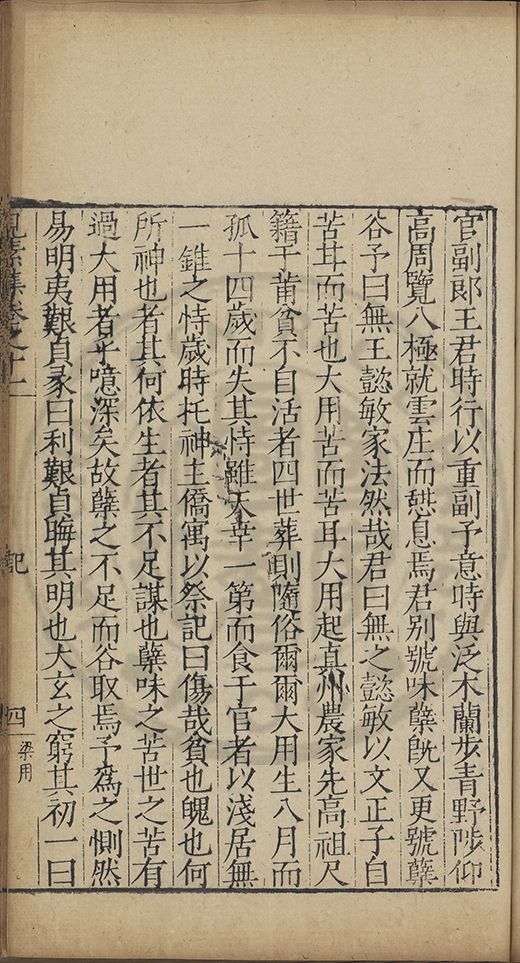 官副郎王君時行以重副予意時與泛木蘭步青野陟仰
高周覽八極就雲庄而憇息焉君别號味蘖旣又更號蘖
谷予曰無王懿敏家法然哉君曰無之懿敏以文正子自
苦耳而苦也大用苦而苦耳大用起真州農家先高祖尺
籍于莆貧不自活者四世葬則隨俗爾爾大用生八月而
孤十四歲而失其恃雖天幸一第而食于官者以淺居無
一錐之恃歲時托神主僑寓以祭記曰傷哉貧也魄也何
所神也者其何依生者其不足謀也蘖味之苦世之苦有
過大用者乎噫深矣故蘖之不足而谷取焉予爲之惻然
易明夷艱貞彖曰利艱貞晦其明也大玄之窮其初一曰
見素集卷之十一 記 四 梁用